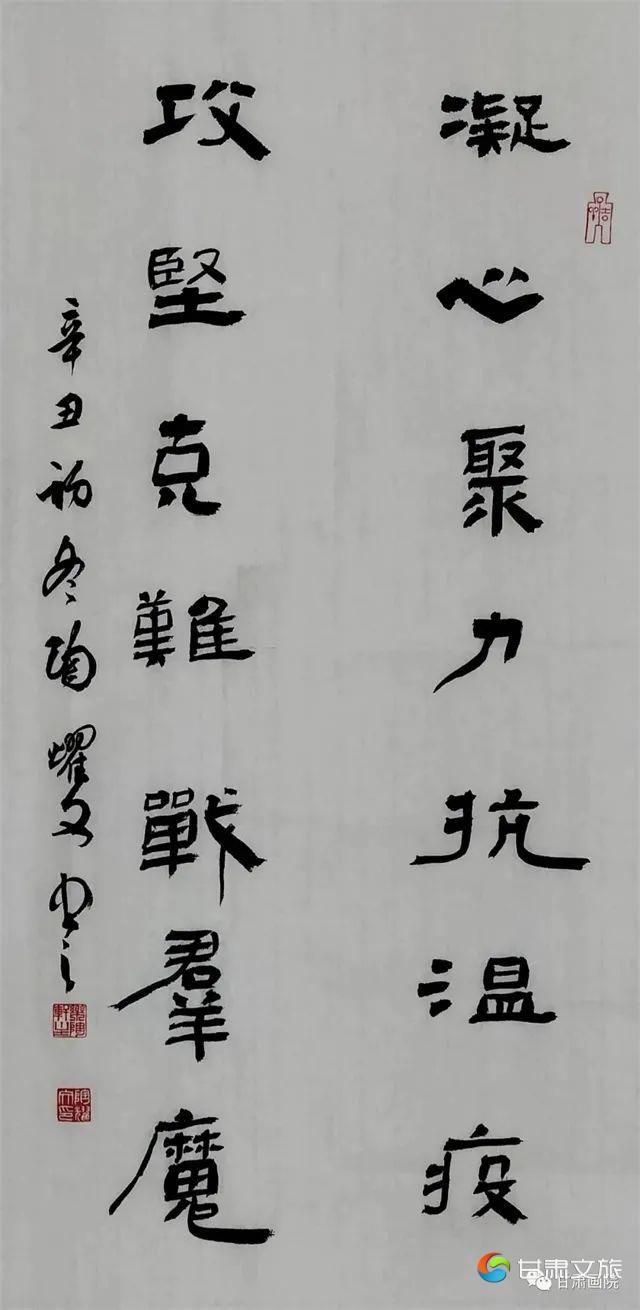 凝心聚力抗温疫
攻堅克難戰羣魔
辛丑初冬陶耀文书之
甘肃文旅
甘肃画院